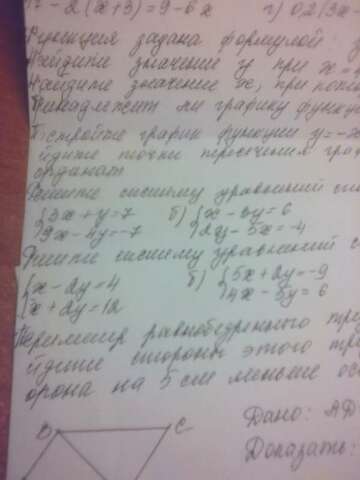 - 2(x+3)=9-6x г) 0,2(3x-
Функция задана формулой
Найдите значение y при x =
Найдите значение x, при
Принадлежит ли графику функции
Постройте график функции y=-2
йдите точки пересечения гра
ординат
Решите систему уравнений
{3x+y=7 б) {x-3y=6
{9x-4y=-7 {2y-5x=-4
Решите систему уравнений с
{x-2y=4 б) {5x+2y=-9
{x+2y=12 {4x-5y=6
Периметр равнобедренного тре
йдите стороны этого тре
орона на 5 см меньше ос
B C
Дано: AD
Доказать: